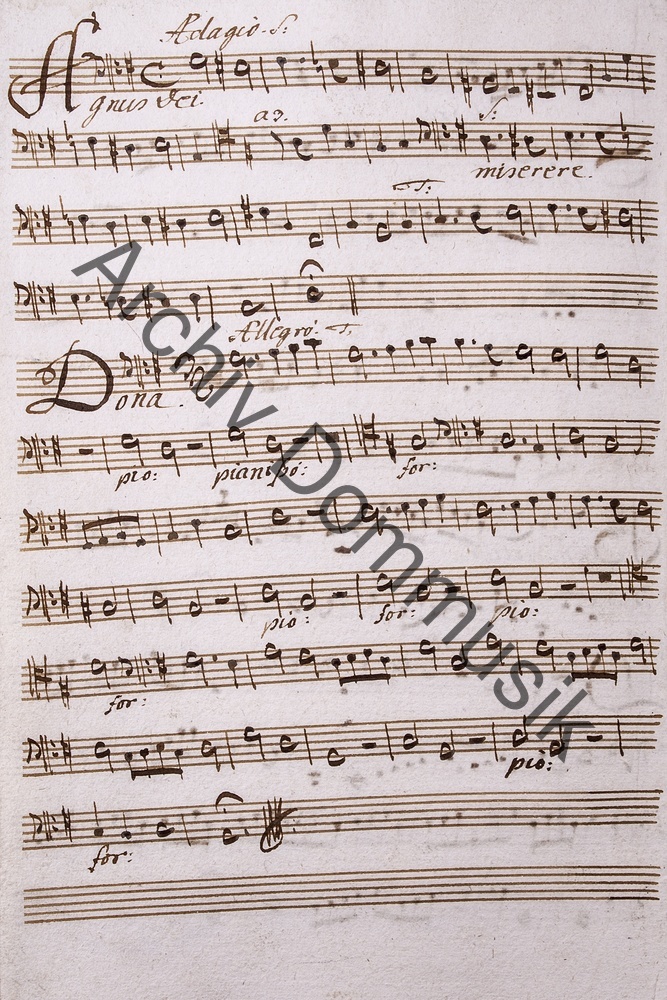 Adagio. S:
Agnus Dei.
a2. S:
miserere.
T:
Allegro. T.
Dona.
pio: pianipo: for:
pio: for: pio:
for:
pio:
for:
Archiv Dommusik